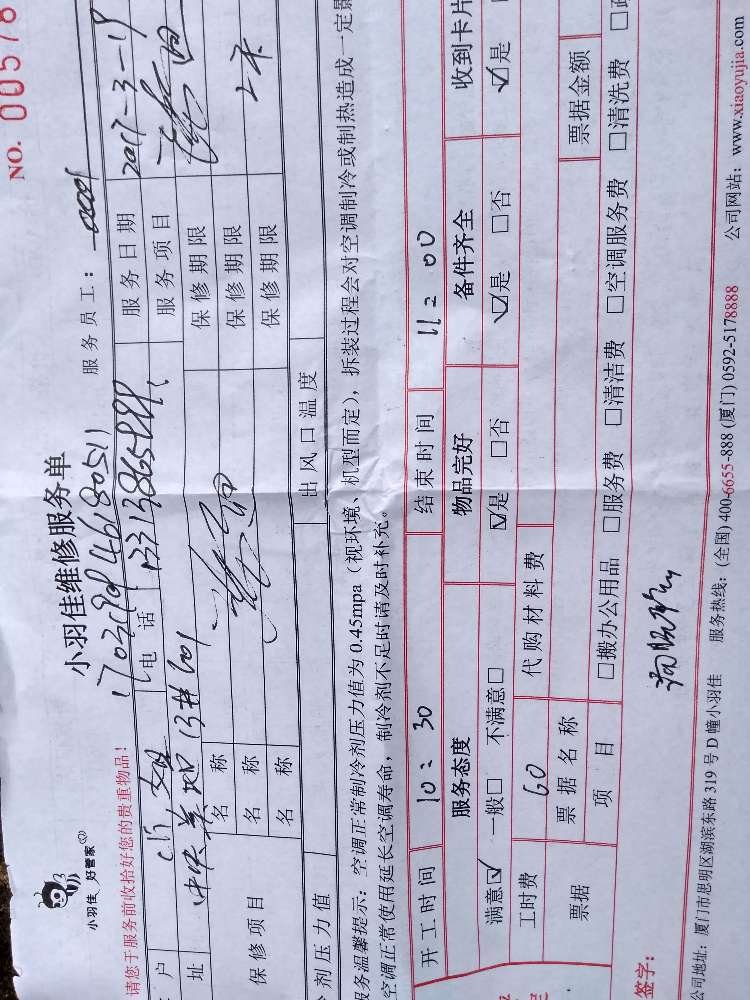 NO. 00578
小羽佳 好管家
小羽佳维修服务单
请您于服务前收拾好您的贵重物品！
服务员工：
户 电话 服务日期 2017-3-19
址 服务项目
保修项目 名称 保修期限
名称 保修期限
名称 保修期限
剂压力值 出风口温度
服务温馨提示：空调正常制冷剂压力值为0.45mpa（视环境、机型而定），拆装过程会对空调制冷或制热造成一定影
空调正常使用延长空调寿命，制冷剂不足时请及时补充。
开工时间 10:30 结束时间 11:00
服务态度 物品完好 备件齐全 收到卡片
满意☑ 一般□ 不满意□ ☑是 □否 ☑是 □否 ☑是
工时费 60 代购材料费
票据 票据名称 票据金额
项目 □搬办公用品 □服务费 □清洁费 □空调服务费 □清洗费
签字：
公司地址：厦门市思明区湖滨东路319号D幢小羽佳 服务热线：(全国) 400-6655-888 (厦门) 0592-5178888 公司网站：www.xiaoyujia.com